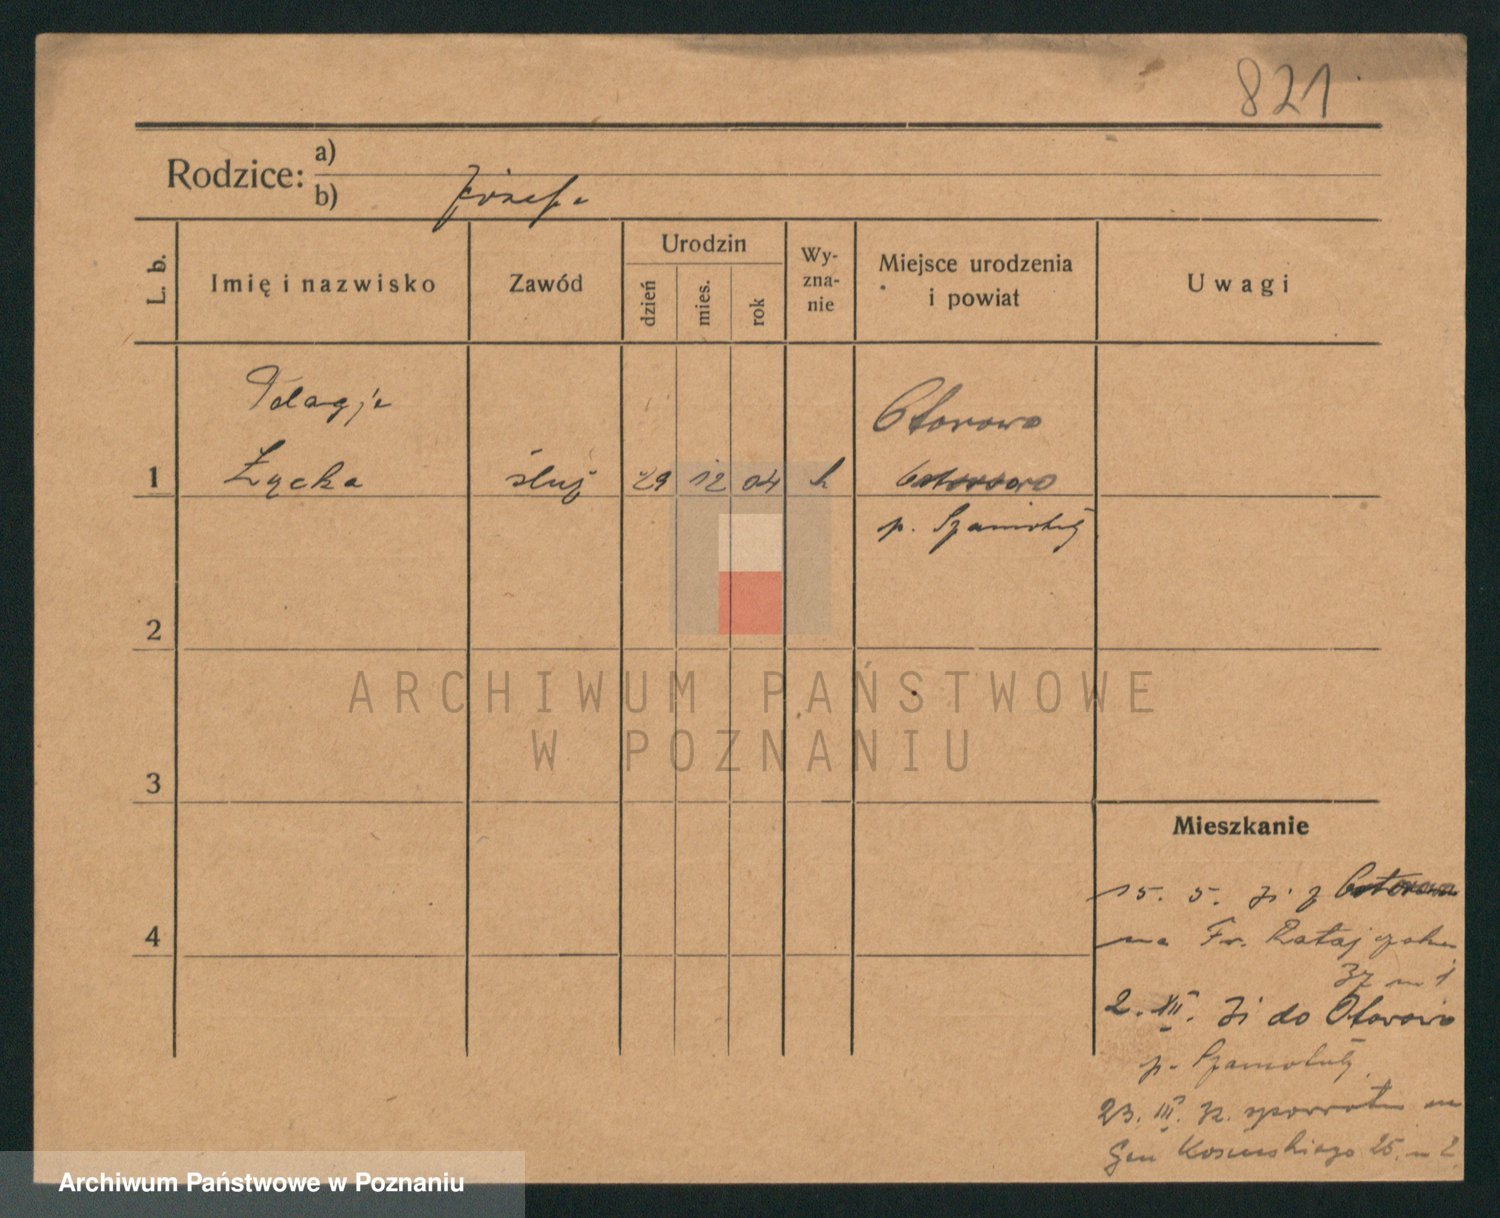 821
Rodzice: a)
b) Józefa
L. b.
Imię i nazwisko
Zawód
Urodzin
dzień
mies.
rok
Wy-
zna-
nie
Miejsce urodzenia
i powiat
Uwagi
Pelagja
Łącka
1
służ
29
12
04
k
Otorowo
p. Szamotuły
2
3
4
ARCHIWUM PAŃSTWOWE
W POZNANIU
Mieszkanie
15. 5. 31 z
na Fr. Ratajczaka
37 m 1
2. XII. 31 do Otorowo
p. Szamotuły
23. III. 32. zpowrotem na
Gen Kosińskiego 25. m 2
Archiwum Państwowe w Poznaniu